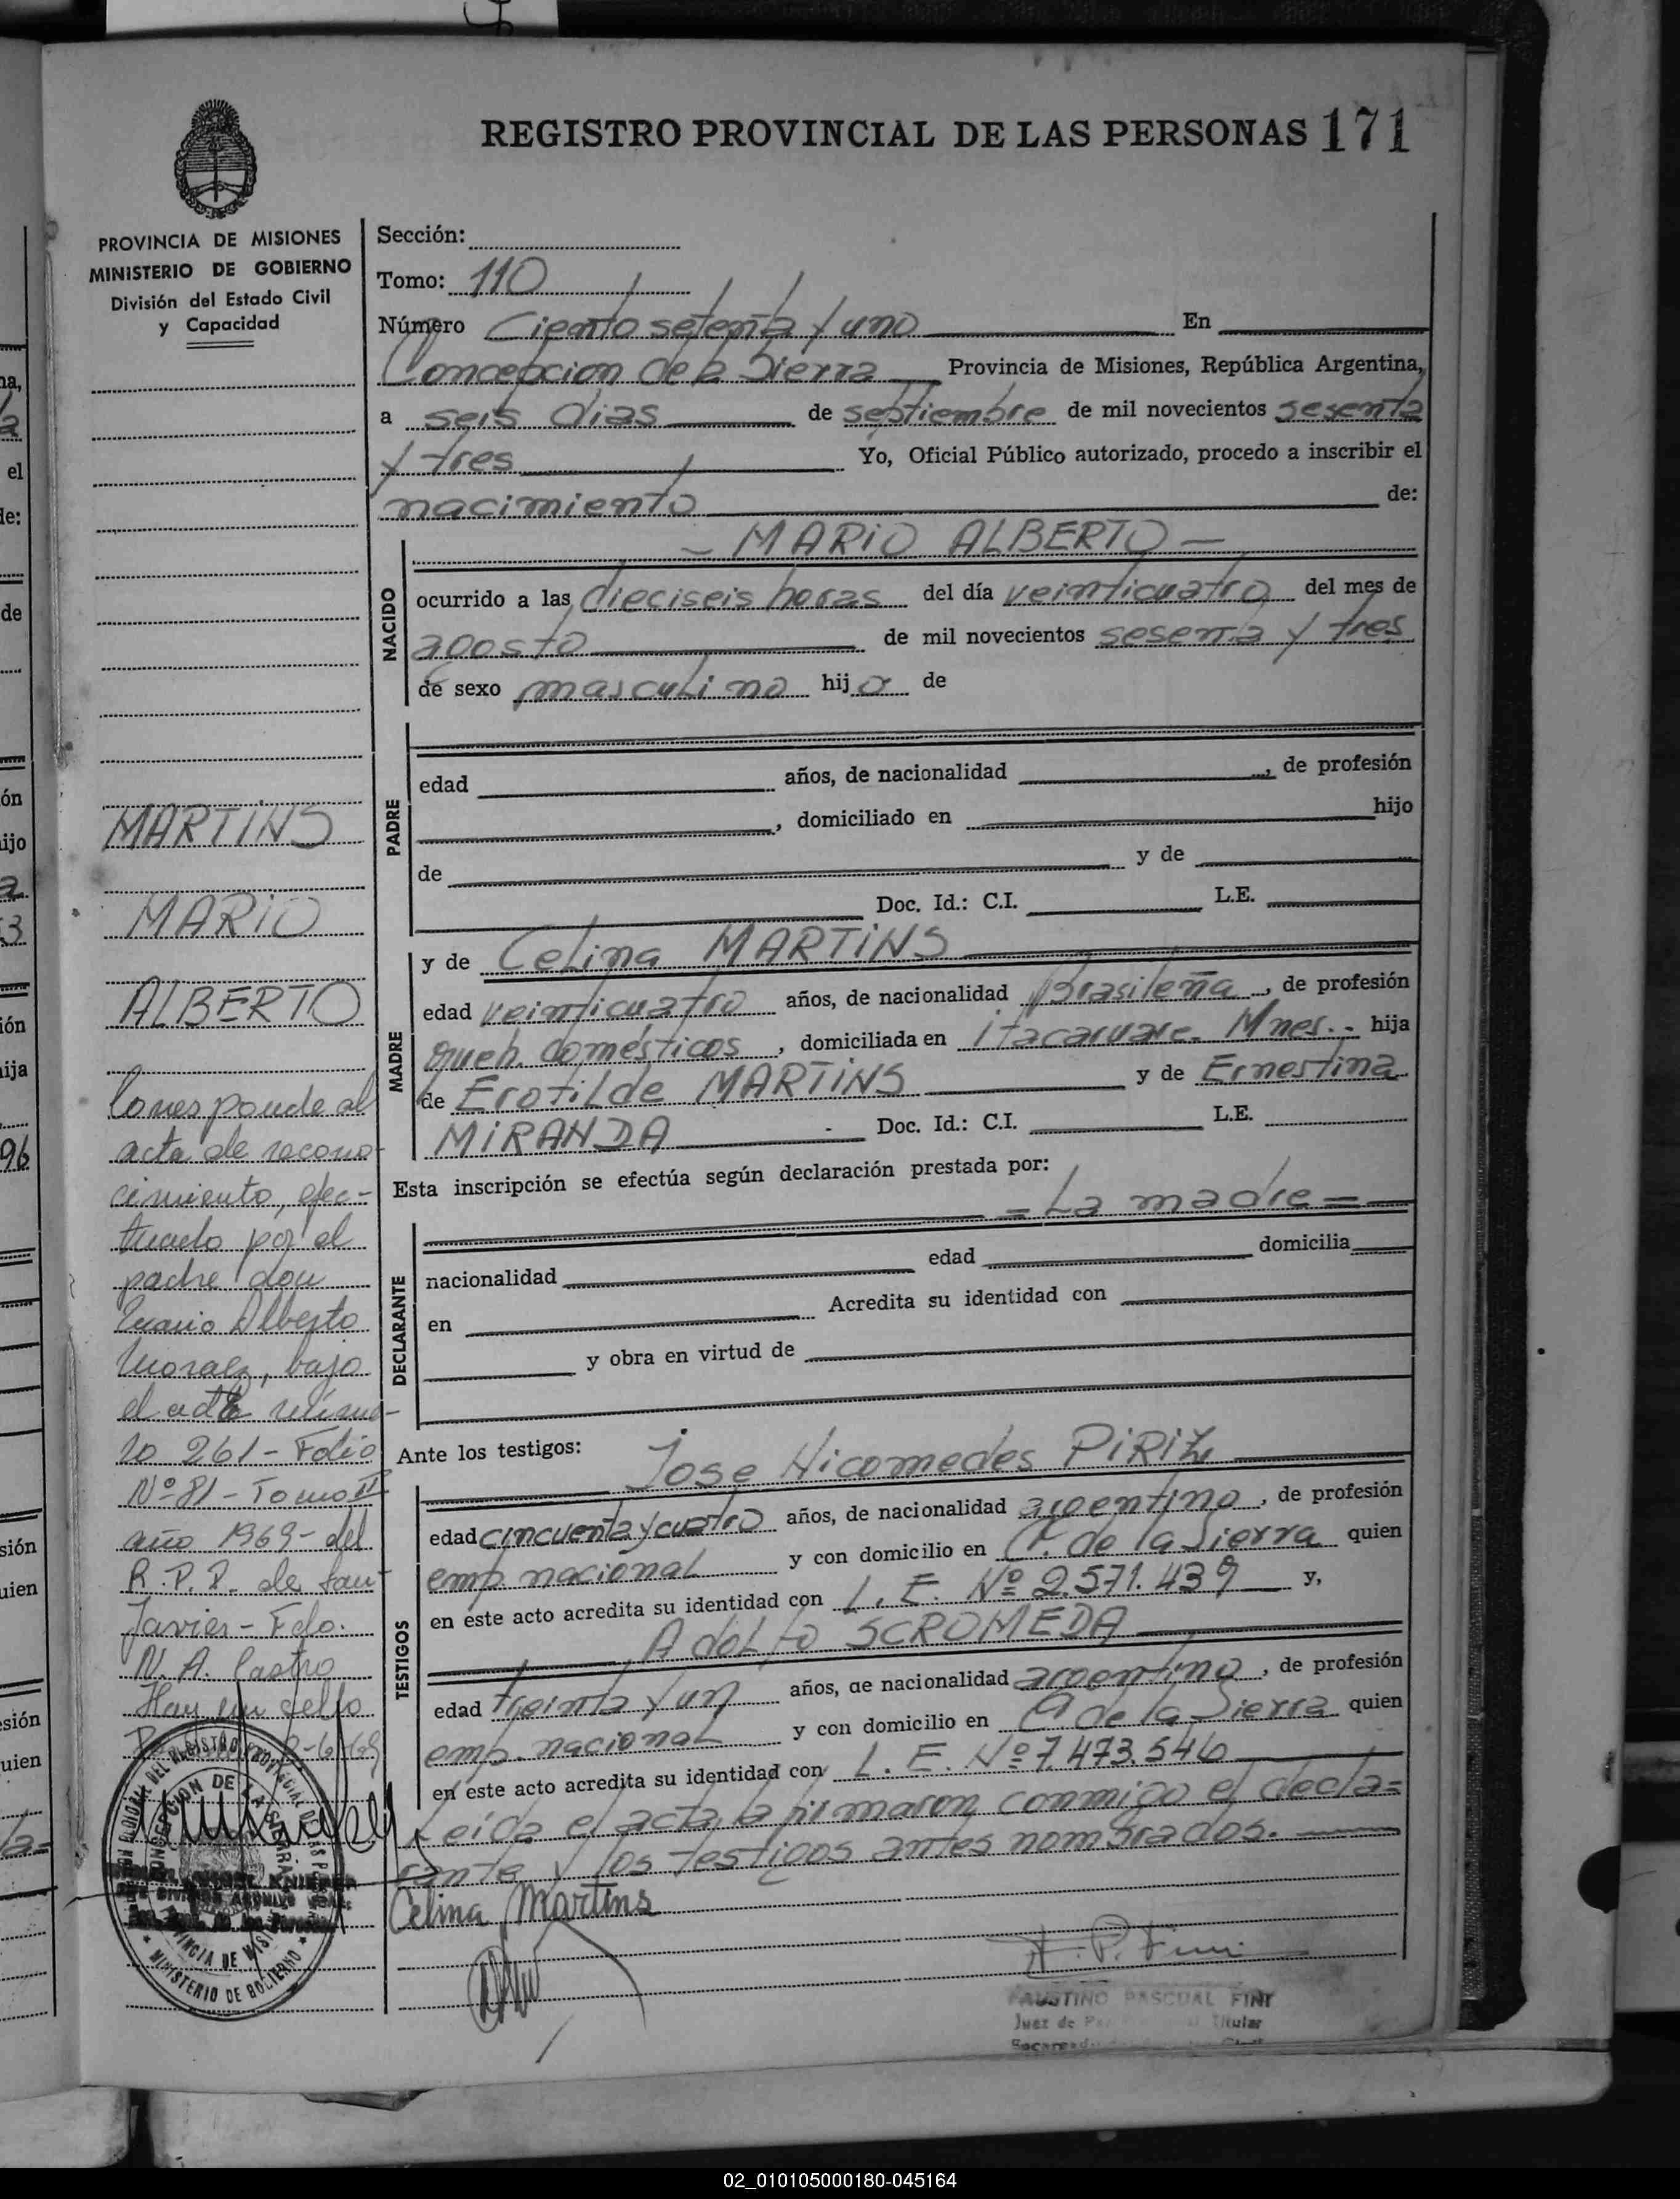 REGISTRO PROVINCIAL DE LAS PERSONAS 171
PROVINCIA DE MISIONES
MINISTERIO DE GOBIERNO
División del Estado Civil
y Capacidad
MARTINS
MARIO
ALBERTO
Corresponde al
acta de recono-
cimiento, efec-
tuado por el
padre don
Mario Alberto
Morales, bajo
el acta núme-
ro 261 - Folio
Nº 81 - Tomo II
año 1969 - del
R.P.P. de San
Javier - Fdo.
N. A. Castro
Hay un sello
Sección:
Tomo: 110
Número Ciento setenta y uno En
Concepcion de la Sierra Provincia de Misiones, República Argentina,
a seis dias de septiembre de mil novecientos sesenta
y tres Yo, Oficial Público autorizado, procedo a inscribir el
nacimiento de:
- MARIO ALBERTO -
NACIDO
ocurrido a las dieciseis horas del día veinticuatro del mes de
agosto de mil novecientos sesenta y tres
de sexo masculino hijo de
PADRE
edad años, de nacionalidad , de profesión
, domiciliado en hijo
de y de
Doc. Id.: C.I. L.E.
MADRE
y de Celina MARTINS
edad veinticuatro años, de nacionalidad Brasileña, de profesión
queh. domésticos, domiciliada en Itacaruare. Mnes.. hija
de Erotilde MARTINS y de Ernestina
MIRANDA - Doc. Id.: C.I. L.E.
Esta inscripción se efectúa según declaración prestada por:
= La madre =
DECLARANTE
nacionalidad edad domicilia
en Acredita su identidad con
y obra en virtud de
Ante los testigos: Jose Nicomedes PIRIZ
TESTIGOS
edad cincuenta y cuatro años, de nacionalidad argentino, de profesión
emp. nacional y con domicilio en C. de la Sierra quien
en este acto acredita su identidad con L. E. Nº 2.571.439 y,
Adolfo SCROMEDA
edad treinta y un años, de nacionalidad argentino, de profesión
emp. nacional y con domicilio en C. de la Sierra quien
en este acto acredita su identidad con L. E. Nº 7.473.546
Leida el acta, la firmaron conmigo el decla=
rante y los testigos antes nombrados.
Celina Martins
F. P. Fini
FAUSTINO PASCUAL FINI
Juez de Titular
CONCEPCION DE LA SIERRA
PROVINCIA DE MISIONES
MINISTERIO DE GOBIERNO
02_010105000180-045164